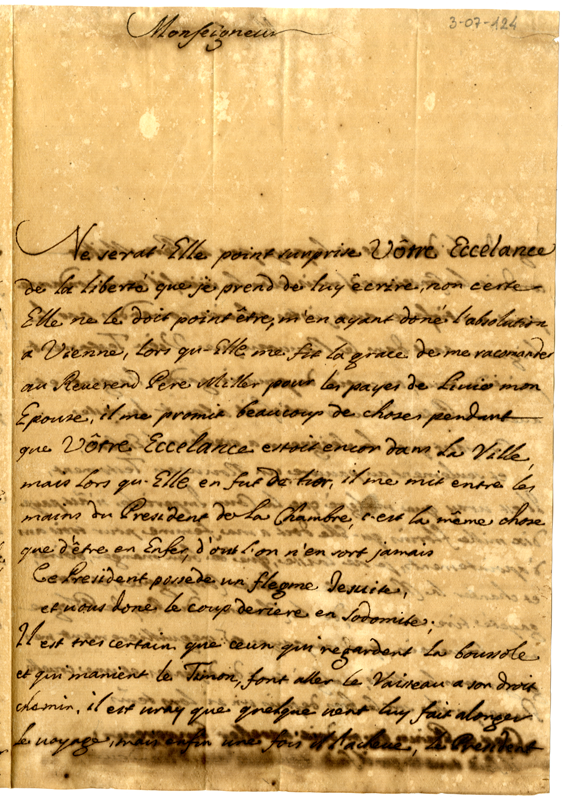 3-07-124
Monseigneur
Ne serat' Elle point surprise Vôtre Eccelance
de la liberté que je prend de luy êcrire, non certe
Elle ne le doit point être, m'en ayant doné l'absolution
a Vienne, lors qu-Elle me fit la grace de me racomander
au Reverend Pere Miller pour les payes de mon
Epouse, il me promit beaucoup de choses pendant
que Vôtre Eccelance estoit encor dans la Ville,
mais lors qu-Elle en fut il me mit entre les
mains du President de la Chambre, c-est la même chose
que d'être en Enfer, d'ou l'on n'en sort jamais
Ce President possede un flegme Jesuite,
et vous done le coup deriere en Sodomite;
Il est tres certain que ceux qui regardent la boussole
et qui manient le Timon, font aller le Vaiseau a son droit
chemin, il est vray que quelque vent luy fait alonger
le voyage, mais enfin une fois il l'acheve, le President